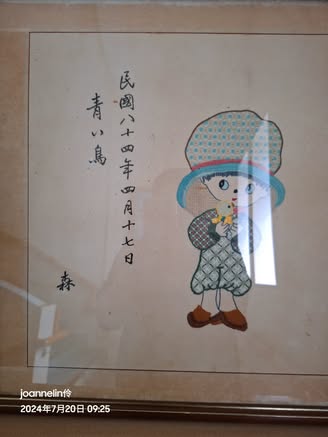 民國八十四年四月十七日
青い鳥
森
joannelin伶
2024年7月20日 09:25